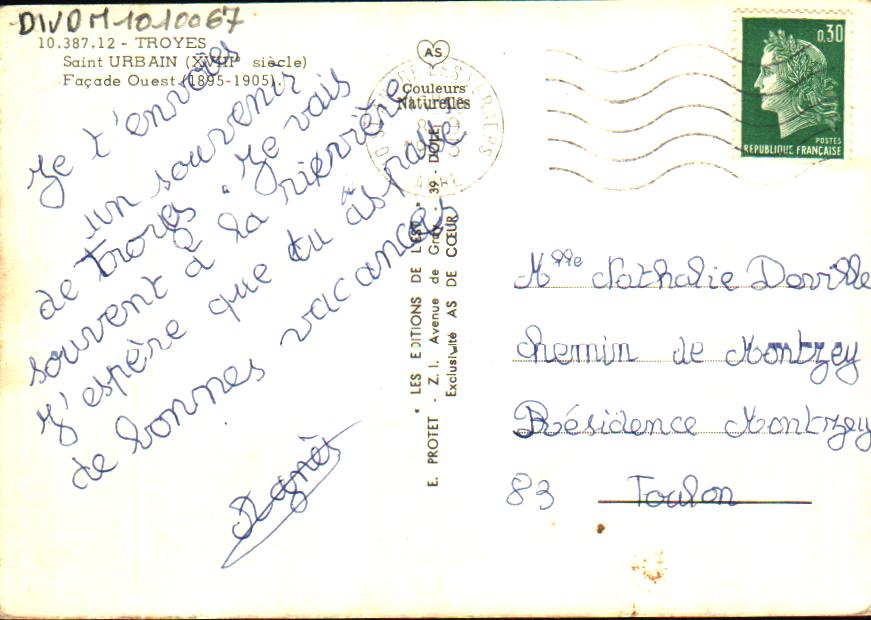 DIVDM1010067
10.387.12 - TROYES
Saint URBAIN (XVIIIᵉ siècle)
Façade Ouest (1895-1905).
Je t'envoies
un souvenir
de troyes. Je vais
souvent à la rierrère
J'espère que tu as passé
de bonnes vacances
Agnès
AS
Couleurs
Naturelles
" LES EDITIONS DE L'EST "
E. PROTET - Z. I. Avenue de Gray 39 - DOLE
Exclusivité AS DE CŒUR
LES VERGERS
AUBE
0,30
POSTES
REPUBLIQUE FRANÇAISE
Mlle Nathalie Doville
Chemin de Montzey
Résidence Montzey
83 Toulon